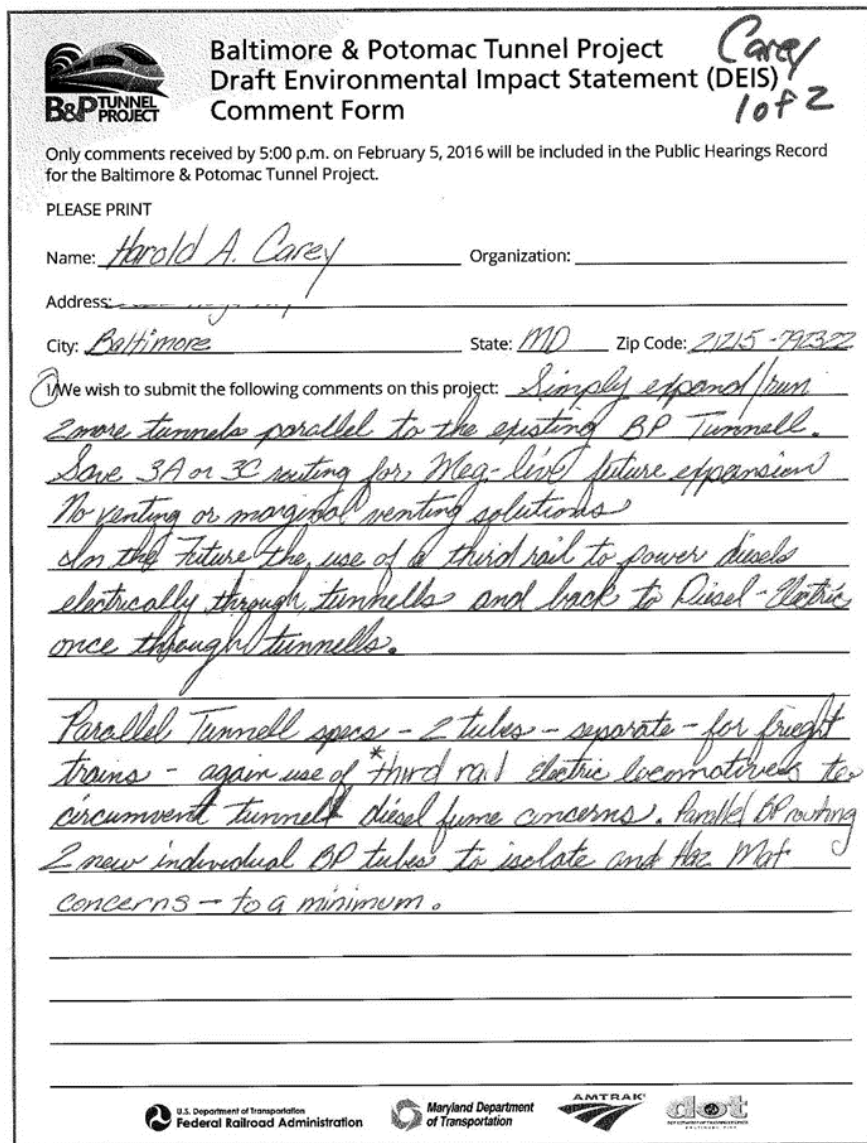 B&P TUNNEL PROJECT
Baltimore & Potomac Tunnel Project
Draft Environmental Impact Statement (DEIS)
Comment Form
Carey
1 of 2
Only comments received by 5:00 p.m. on February 5, 2016 will be included in the Public Hearings Record
for the Baltimore & Potomac Tunnel Project.
PLEASE PRINT
Name: Harold A. Carey Organization:
Address:
City: Baltimore State: MD Zip Code: 21215-792322
I/We wish to submit the following comments on this project: Simply expand/run
2 more tunnels parallel to the existing BP Tunnell.
Save 3A or 3C routing for Meg-lev/ future expansion
No venting or marginal venting solutions
In the Future the use of a third rail to power diesels
electrically through tunnells and back to Diesel-Electric
once through tunnells.
Parallel Tunnell specs - 2 tubes - separate - for frieght
trains - again use of *third rail Electric locomotives to
circumvent tunnell diesel fume concerns. Parallel BP routing
2 new individual BP tubes to isolate and Haz Mat
concerns - to a minimum.
U.S. Department of Transportation
Federal Railroad Administration
Maryland Department
of Transportation
AMTRAK
dot